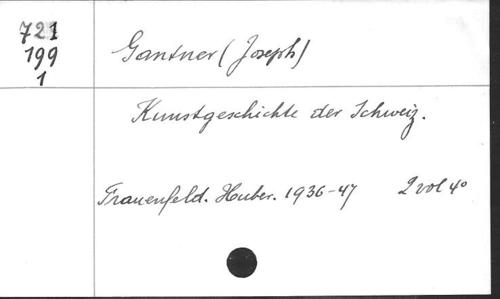 721
199
1
Gantner (Joseph)
Kunstgeschichte der Schweiz.
Frauenfeld. Huber. 1936-47 2 vol 4°